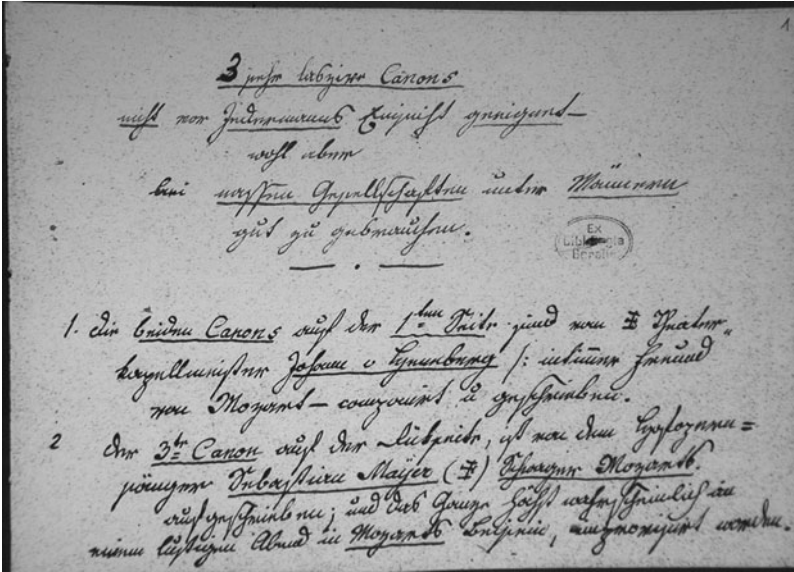 1
3 sehr laszive Canons
nicht vor Jedermanns geeignet –
wohl aber
bei nassen Gesellschaften unter Männern
gut zu gebrauchen.
Ex
Berolin
1. die beiden Canons auf der 1ten Seite sind vom ‡ Theater-
kapellmeister Johann v Henneberg /: intimer Freund
von Mozart – componirt u geschrieben.
2 der 3te Canon auf der Rückseite, ist von dem Hofopern=
sänger Sebastian Maijer (‡) Schwager Mozarts.
aufgeschrieben; und das Ganze höchst wahrscheinlich an
einem lustigen Abend in Mozarts Beisein, improvisirt worden.